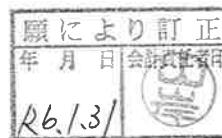 願により訂正
年 月 日 会計責任者印
R6.1.31